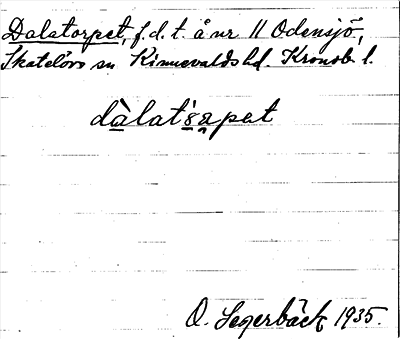 Dalatorpet, f.d.t. å nr 11 Odensjö,
Skatelövs sn Kinnevalds hd. Kronob. l.
dàlat'ɞrpet
O. Segerbäck 1935.